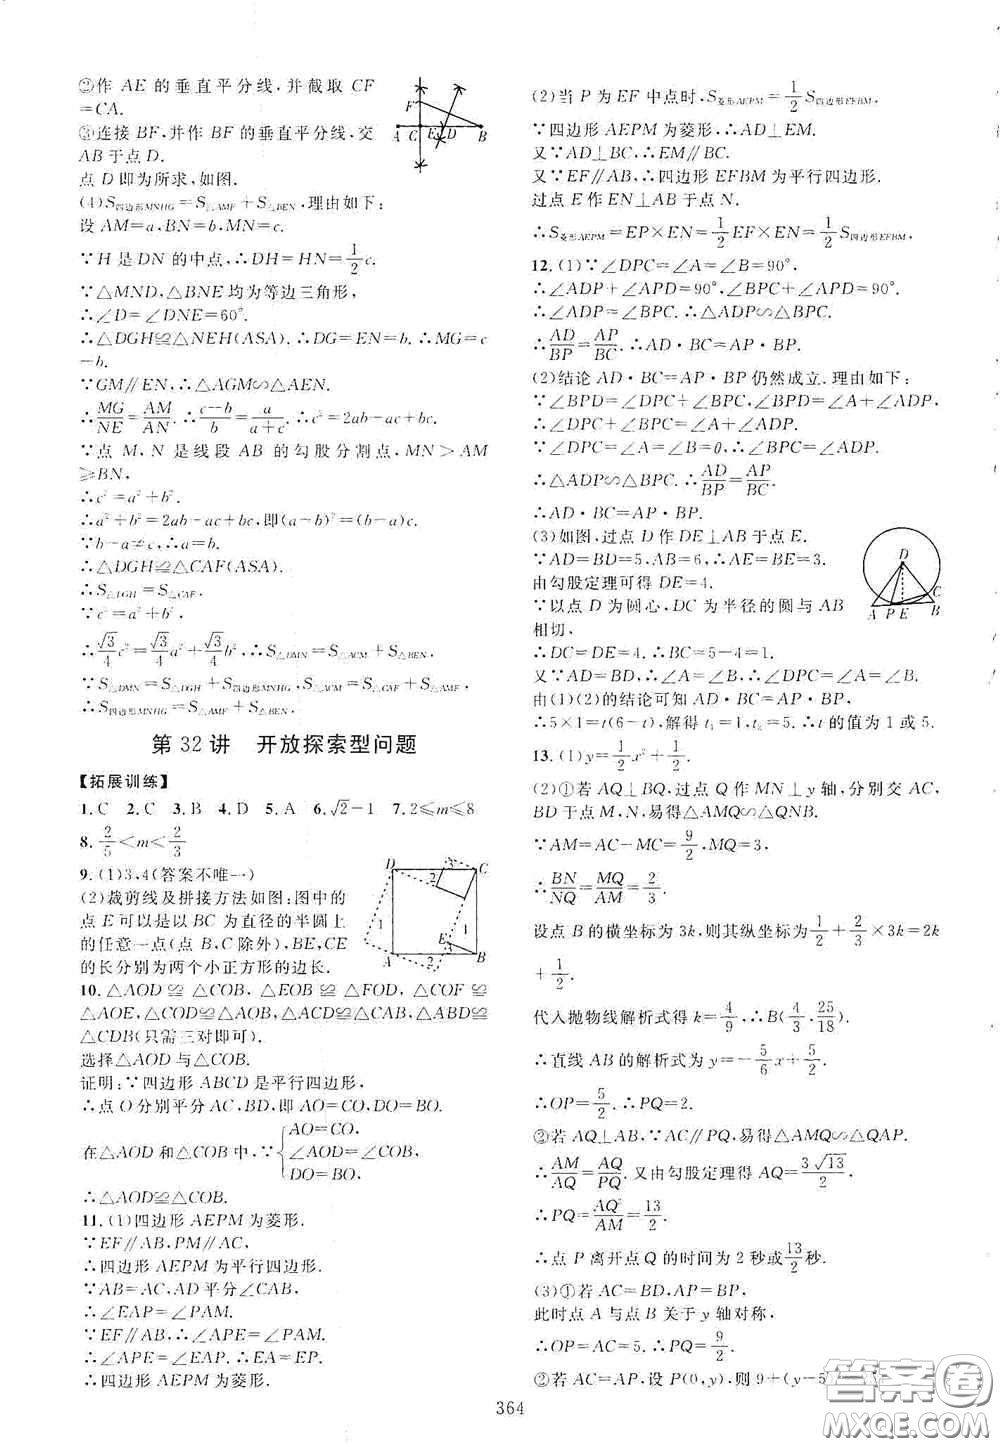 ②作 AE 的垂直平分线,并截取 CF
=CA.
③连接 BF,并作 BF 的垂直平分线,交
AB 于点 D.
点 D 即为所求,如图.
F
A C E D B
(4)S四边形MNHG=S△AMF+S△BEN,理由如下:
设 AM=a,BN=b,MN=c.
∵H 是 DN 的中点,∴DH=HN=1/2c.
∵△MND,△BNE 均为等边三角形,
∴∠D=∠DNE=60°.
∴△DGH≌△NEH(ASA).∴DG=EN=b.∴MG=c
-b.
∵GM∥EN,∴△AGM∽△AEN.
∴MG/NE=AM/AN.∴(c-b)/b=a/(a+c).∴c²=2ab-ac+bc.
∵点 M、N 是线段 AB 的勾股分割点,MN>AM
≥BN,
∴c²=a²+b².
∴a²+b²=2ab-ac+bc,即(a-b)²=(b-a)c.
∵b-a≠c,∴a=b.
∴△DGH≌△CAF(ASA).
∴S△DGH=S△CAF.
∵c²=a²+b²,
∴√3/4c²=√3/4a²+√3/4b²,∴S△DMN=S△ACM+S△BEN.
∵S△DMN=S△DGH+S四边形MNHG,S△ACM=S△CAF+S△AMF,
∴S四边形MNHG=S△AMF+S△BEN.
第 32 讲 开放探索型问题
【拓展训练】
1.C 2.C 3.B 4.D 5.A 6.√2-1 7.2≤m≤8
8.2/5<m<2/3
9.(1)3,4(答案不唯一)
(2)裁剪线及拼接方法如图:图中的
点 E 可以是以 BC 为直径的半圆上
的任意一点(点 B、C 除外),BE,CE
的长分别为两个小正方形的边长.
D 3 C
2
1 1
E
3
A 2 B
10.△AOD≌△COB,△EOB≌△FOD,△COF≌
△AOE,△COD≌△AOB,△ADC≌△CBA,△ABD≌
△CDB(只需三对即可).
选择△AOD与△COB.
证明:∵四边形 ABCD 是平行四边形,
∴点 O 分别平分 AC,BD,即 AO=CO,DO=BO.
在△AOD 和△COB 中,∵{AO=CO,
∠AOD=∠COB,
DO=BO.
∴△AOD≌△COB.
11.(1)四边形 AEPM 为菱形.
∵EF∥AB,PM∥AC,
∴四边形 AEPM 为平行四边形.
∵AB=AC,AD 平分∠CAB,
∴∠EAP=∠PAM.
∵EF∥AB,∴∠APE=∠PAM.
∴∠EAP=∠APE.∴EA=EP.
∴四边形 AEPM 为菱形.
(2)当 P 为 EF 中点时,S菱形AEPM=1/2S四边形EFBM,
∵四边形 AEPM 为菱形,∴AD⊥EM.
又∵AD⊥BC,∴EM∥BC.
又∵EF∥AB,∴四边形 EFBM 为平行四边形.
过点 E 作 EN⊥AB 于点 N.
∴S菱形AEPM=EP×EN=1/2EF×EN=1/2S四边形EFBM.
12.(1)∵∠DPC=∠A=∠B=90°,
∴∠ADP+∠APD=90°,∠BPC+∠APD=90°.
∴∠ADP=∠BPC.∴△ADP∽△BPC.
∴AD/BP=AP/BC.∴AD·BC=AP·BP.
(2)结论 AD·BC=AP·BP 仍然成立.理由如下:
∵∠BPD=∠DPC+∠BPC,∠BPD=∠A+∠ADP,
∴∠DPC+∠BPC=∠A+∠ADP.
∵∠DPC=∠A=∠B=θ,∴∠BPC=∠ADP.
∴△ADP∽△BPC.∴AD/BP=AP/BC.
∴AD·BC=AP·BP.
(3)如图,过点 D 作 DE⊥AB 于点 E.
∵AD=BD=5,AB=6,∴AE=BE=3.
由勾股定理可得 DE=4.
∵以点 D 为圆心,DC 为半径的圆与 AB
相切,
D
C
A P E B
∴DC=DE=4.∴BC=5-4=1.
又∵AD=BD,∴∠A=∠B,∴∠DPC=∠A=∠B.
由(1)(2)的结论可知 AD·BC=AP·BP.
∴5×1=t(6-t),解得 t₁=1,t₂=5.∴t 的值为 1 或 5.
13.(1)y=1/2x²+1/2.
(2)①若 AQ⊥BQ,过点 Q 作 MN⊥y 轴,分别交 AC,
BD 于点 M、N,易得△AMQ∽△QNB.
∵AM=AC-MC=9/2,MQ=3,
∴BN/NQ=MQ/AM=2/3.
设点 B 的横坐标为 3k,则其纵坐标为1/2+2/3×3k=2k
+1/2.
代入抛物线解析式得 k=4/9,∴B(4/3,25/18).
∴直线 AB 的解析式为 y=-5/6x+5/2.
∴OP=5/2.∴PQ=2.
②若 AQ⊥AB,∵AC∥PQ,易得△AMQ∽△QAP.
∴AM/AQ=AQ/PQ.又由勾股定理得 AQ=3√13/2.
∴PQ=AQ²/AM=13/2.
∴点 P 离开点 Q 的时间为 2 秒或13/2秒.
(3)①若 AC=BD,AP=BP,
此时点 A 与点 B 关于 y 轴对称,
∴OP=AC=5.∴PQ=9/2.
②若 AC=AP,设 P(0,y),则 9+(y-5
364
答案圈
MXQE.COM